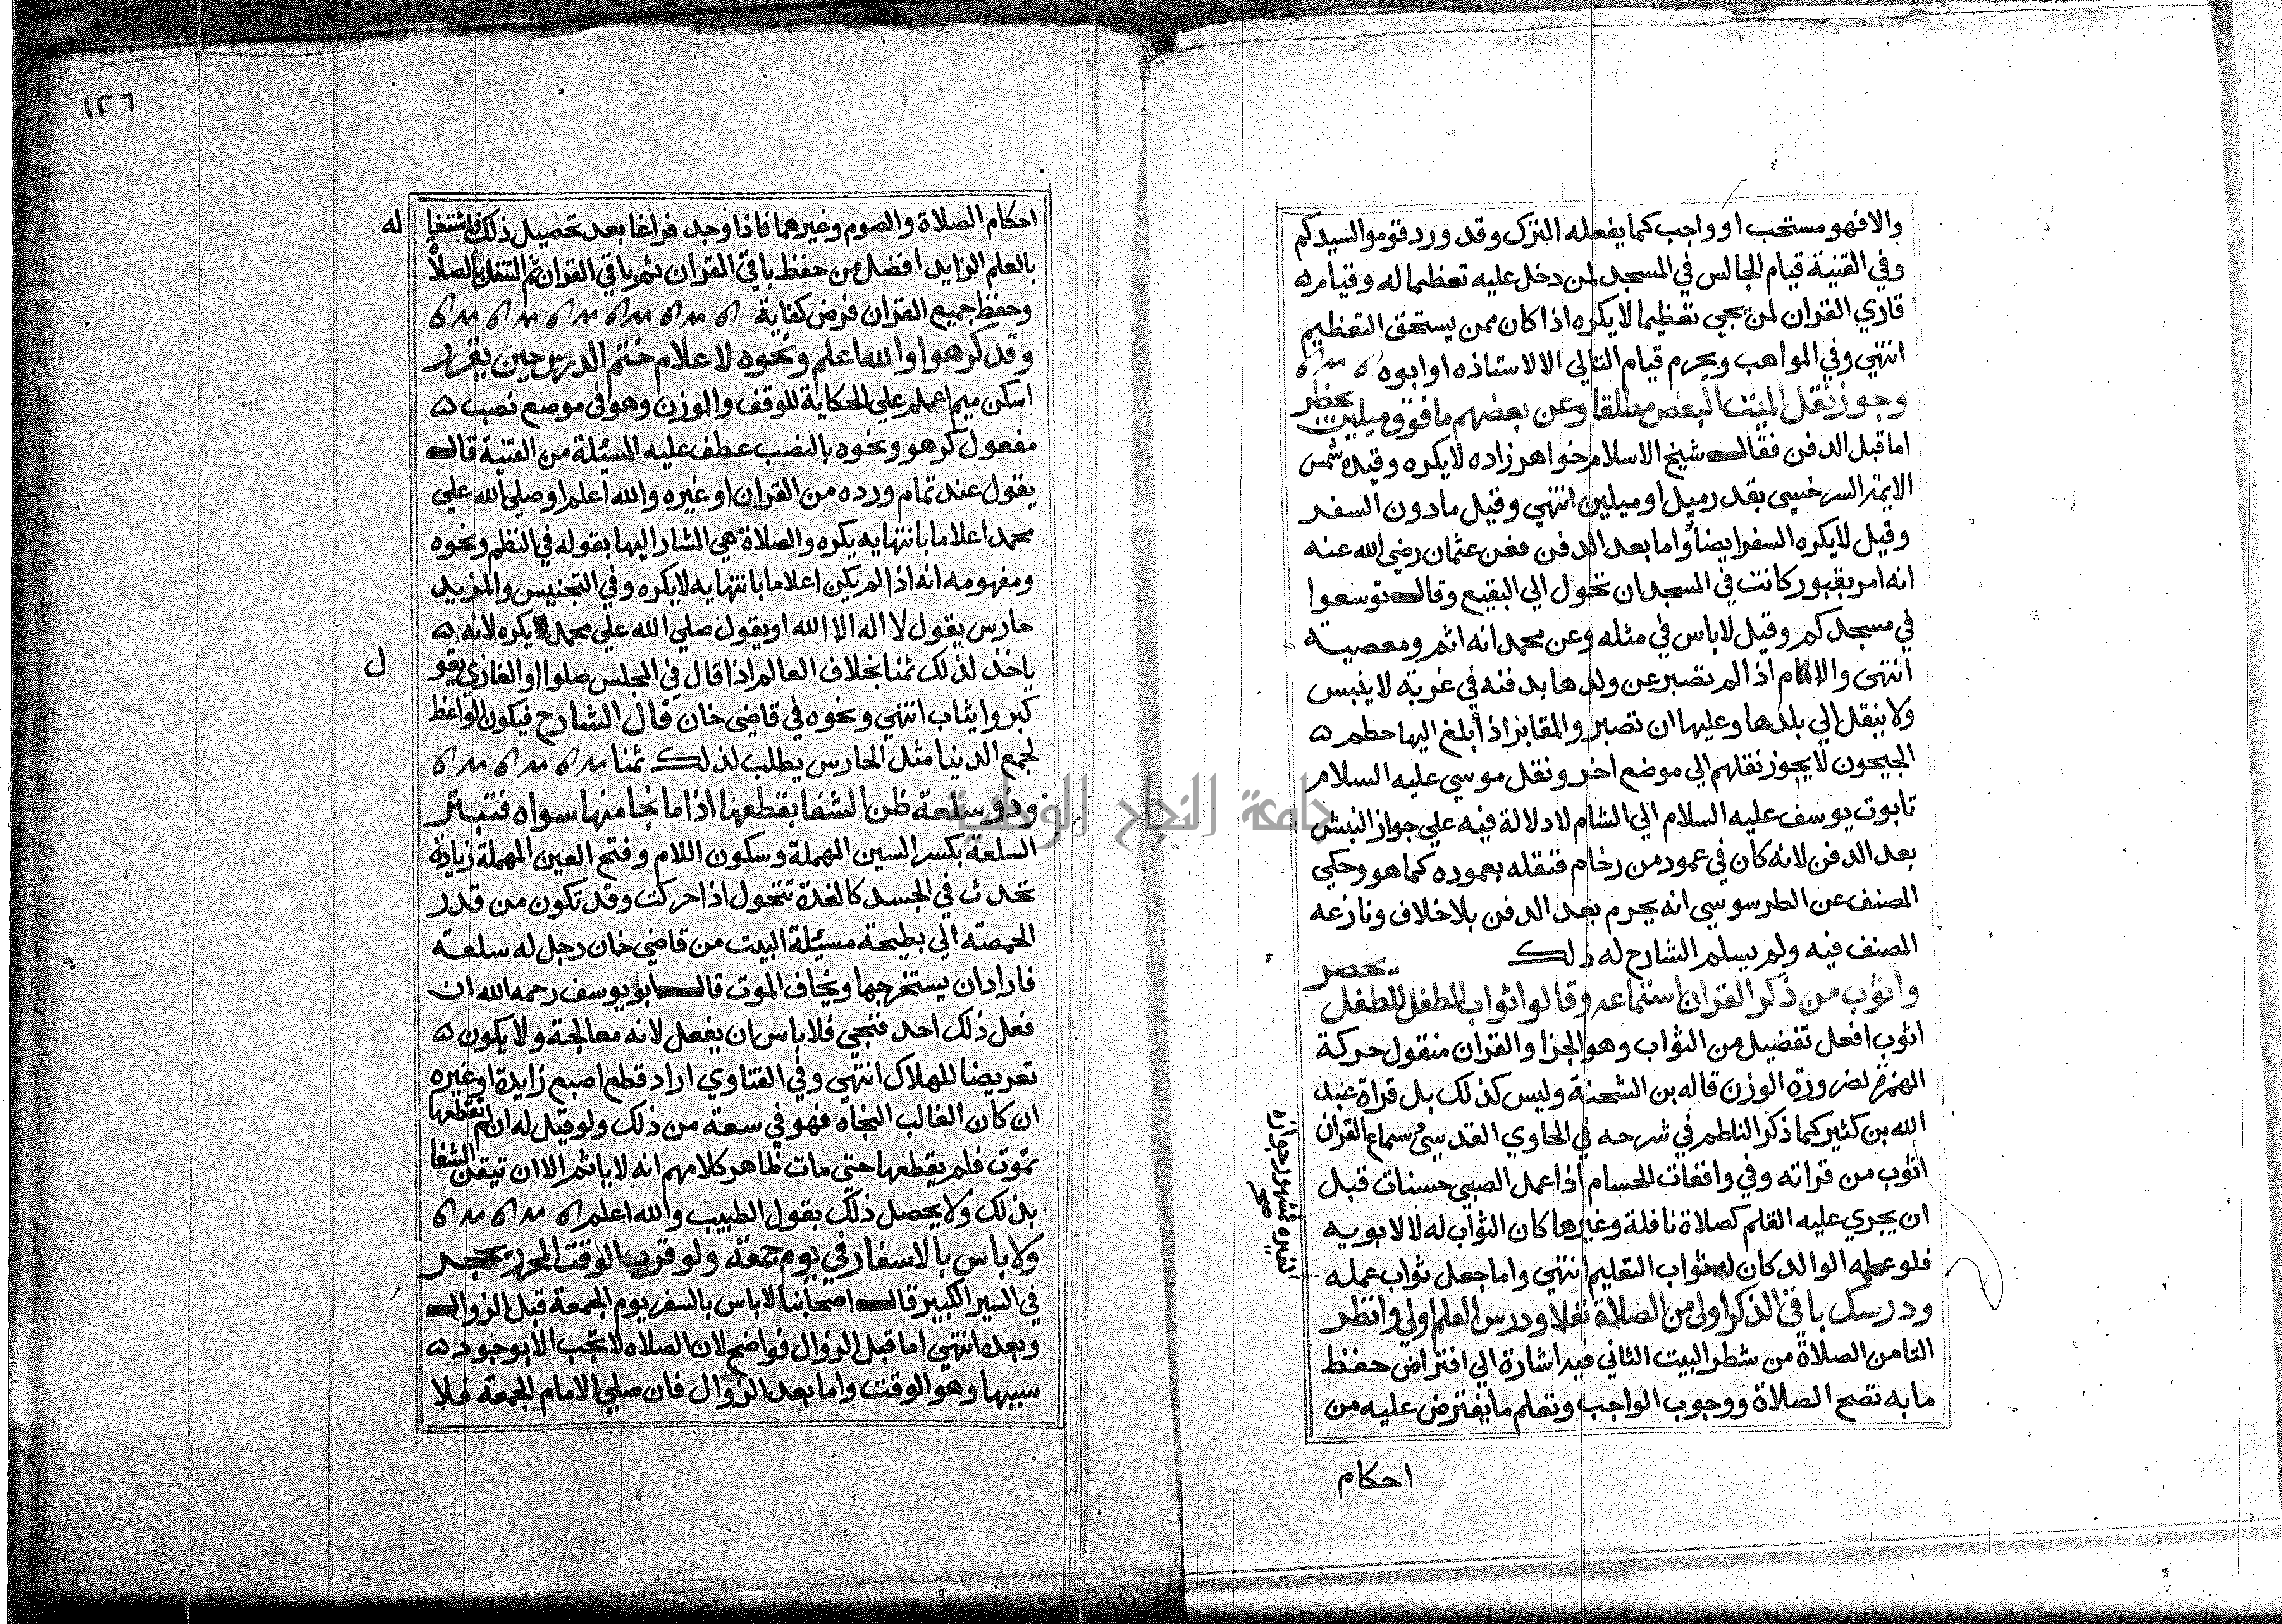 والا فهو مستحب او واجب كما يفعله الترك وقد ورد قوموا لسيدكم
وفي القنية قيام الجالس في المسجد لمن دخل عليه تعظيما له وقيام
قاري القران لمن يجي تعظيما لا يكره اذا كان ممن يستحق التعظيم
انتهي وفي المواهب ويحرم قيام التالي الا لاستاذه او ابوه
وجوز نقل الميت البعض مطلقا وعن بعضهم ما فوق ميلين يحظر
اما قبل الدفن فقال شيخ الاسلام خواهر زاده لا يكره وقيده شمس
الايمة السرخسي بقدر ميل او ميلين انتهي وقيل ما دون السفر
وقيل لا يكره السفر ايضا واما بعد الدفن فعن عثمان رضي الله عنه
انه امر بقبور كانت في المسجد ان تحول الي البقيع وقال توسعوا
في مسجدكم وقيل لا باس في مثله وعن محمد انه اثم ومعصية
انتهي والام اذا لم تصبر عن ولدها بدفنه في غربة لا ينبس
ولا ينقل الي بلدها وعليها ان تصبر والمقابر اذا بلغ اليها حطم
الجيحون لا يجوز نقلهم الي موضع اخر ونقل موسي عليه السلام
تابوت يوسف عليه السلام الي الشام لا دلالة فيه علي جواز النبش
بعد الدفن لانه كان في عمود من رخام فنقله بعموده كما هو وحكي
المصنف عن الطرسوسي انه يحرم بعد الدفن بلا خلاف ونازعه
المصنف فيه ولم يسلم الشارح له ذلك
واثوب من ذكر القران استماعه وقالوا ثواب الطفل للطفل يحصر
اثوب افعل تفضيل من الثواب وهو الجزا والقران منقول حركة
الهمزة لضرورة الوزن قاله بن الشحنة وليس كذلك بل قراة عبد
الله بن كثير كما ذكر الناظم في شرحه في الحاوي القدسي سماع القران
اثوب من قراته وفي واقعات الحسام اذا عمل الصبي حسنات قبل
ان يجري عليه القلم كصلاة نافلة وغيرها كان الثواب له لا لابويه
فلو عمله الوالد كان له ثواب التعليم انتهي واما جعل ثواب عمله
لغيره فمشهور جوازه
صح
ودرسك باقي الذكر اولي من الصلاة نفلا ودرس العلم اولي وانظر
التا من الصلاة من شطر البيت الثاني فيه اشارة الي افتراض حفظ
ما به تصح الصلاة ووجوب الواجب وتعلم ما يفترض عليه من
احكام
١٢٦
احكام الصلاة والصوم وغيرهما فاذا وجد فراغا بعد تحصيل ذلك فاشتغا له
بالعلم الزايد افضل من حفظ باقي القران ثم باقي القران ثم التنفل بالصلاة
وحفظ جميع القران فرض كفاية
وقد كرهوا والله اعلم ونحوه لاعلام ختم الدرس حين يقرر
اسكن ميم اعلم علي الحكاية للوقف والوزن وهو في موضع نصب
مفعول كرهو ونحوه بالنصب عطف عليه المسئلة من القنية قال
يقول عند تمام ورده من القران او غيره والله اعلم او صلي الله علي
محمد اعلاما بانتهايه يكره والصلاة هي المشار اليها بقوله في النظم ونحوه
ومفهومه انه اذا لم يكن اعلاما بانتهايه لا يكره وفي التجنيس والمزيد
حارس يقول لا اله الا الله او يقول صلي الله علي محمد يكره لانه
ياخذ لذلك ثمنا بخلاف العالم اذا قال في المجلس صلوا او الغازي يقو ل
كبروا يثاب انتهي ونحوه في قاضي خان قال الشارح فيكون الواعظ
لجمع الدنيا مثل الحارس يطلب لذلك ثمنا
وذو سلعة ظن الشفا بقطعها اذا ما نجا منها سواه فتبتر
السلعة بكسر السين المهملة وسكون اللام وفتح العين المهملة زيادة
تحدث في الجسد كالغدة تتحول اذا حركت وقد تكون من قدر
الحمصة الي بطيحة مسئلة البيت من قاضي خان رجل له سلعة
فاراد ان يستخرجها ويخاف الموت قال ابو يوسف رحمه الله ان
فعل ذلك احد فنجي فلا باس ان يفعل لانه معالجة ولا يكون
تعريضا للهلاك انتهي وفي الفتاوي اراد قطع اصبع زايدة او غيره
ان كان الغالب النجاه فهو في سعة من ذلك ولو قيل له ان لم تقطعها
تموت فلم يقطعها حتي مات ظاهر كلامهم انه لا ياثم الا ان تيقن الشفا
بذلك ولا يحصل ذلك بقول الطبيب والله اعلم
ولا باس بالاسفار في يوم جمعة ولو قرب الوقت المحرر
في السير الكبير قال اصحابنا لا باس بالسفر يوم الجمعة قبل الزوال
وبعده انتهي اما قبل الزوال فواضح لان الصلاه لا تجب الا بوجود
سببها وهو الوقت واما بعد الزوال فان صلي الامام الجمعة فلا
جامعة النجاح الوطنية